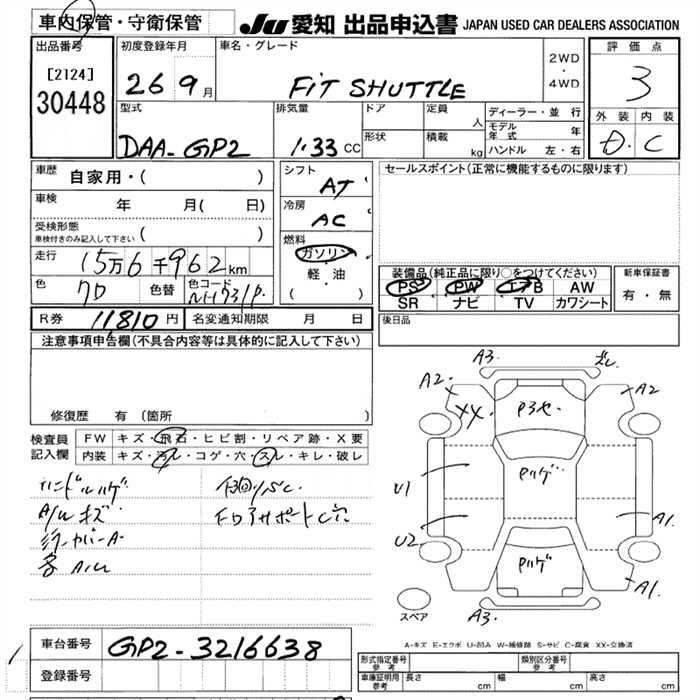 車内保管・守衛保管
JU 愛知 出品申込書 JAPAN USED CAR DEALERS ASSOCIATION
出品番号
[2124]
30448
初度登録年月
26 9月
車名・グレード
FIT SHUTTLE
2WD
・
4WD
評価点
3
外装 内装
D. C
型式
DAA-GP2
排気量
1.33 CC
ドア
形状
定員 人
積載 kg
ディーラー・並行
モデル年式 年
ハンドル 左・右
車歴
自家用・( )
車検 年 月( 日)
受検形態
車検付きのみ記入して下さい ( )
走行
15万6千962km
色
クロ
色替
色コード
NH731P.
シフト
AT
冷房
AC
燃料
ガソリン
・
軽・油
( )
セールスポイント(正常に機能するものに限ります)
装備品(純正品に限り○をつけてください)
PS PW エアB AW
SR ナビ TV カワシート
新車保証書
有・無
R券 11810円 名変通知期限 月 日
後日品
注意事項申告欄(不具合内容等は具体的に記入して下さい)
修復歴 有(箇所 )
検査員
記入欄
FW キズ・飛石・ヒビ割・リペア跡・X要
内装 キズ・汚レ・コゲ・穴・スレ・キレ・破レ
ハンドルハゲ
A/Wキズ
A3
ズレ
A2
A2
XX
Pハゲ
Pハゲ
U1
U2
A1
A1
A3
スペア
A-キズ E-エクボ U-凹み W-補修跡 S-サビ C-腐食 XX-交換済
車台番号
GP2-3216638
登録番号
形式指定番号
参考
類別区分番号
参考
車庫証明用
参考
長さ cm
幅 cm
高さ cm